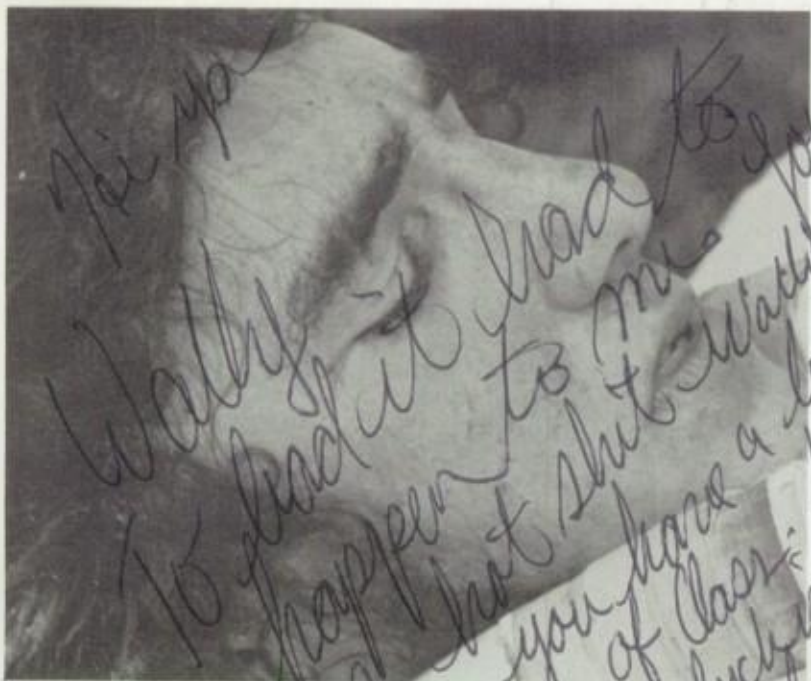 Hi ya
Wally
To bad it had to
happen to me. yo
a hot shit Wall
you have a
of Class.